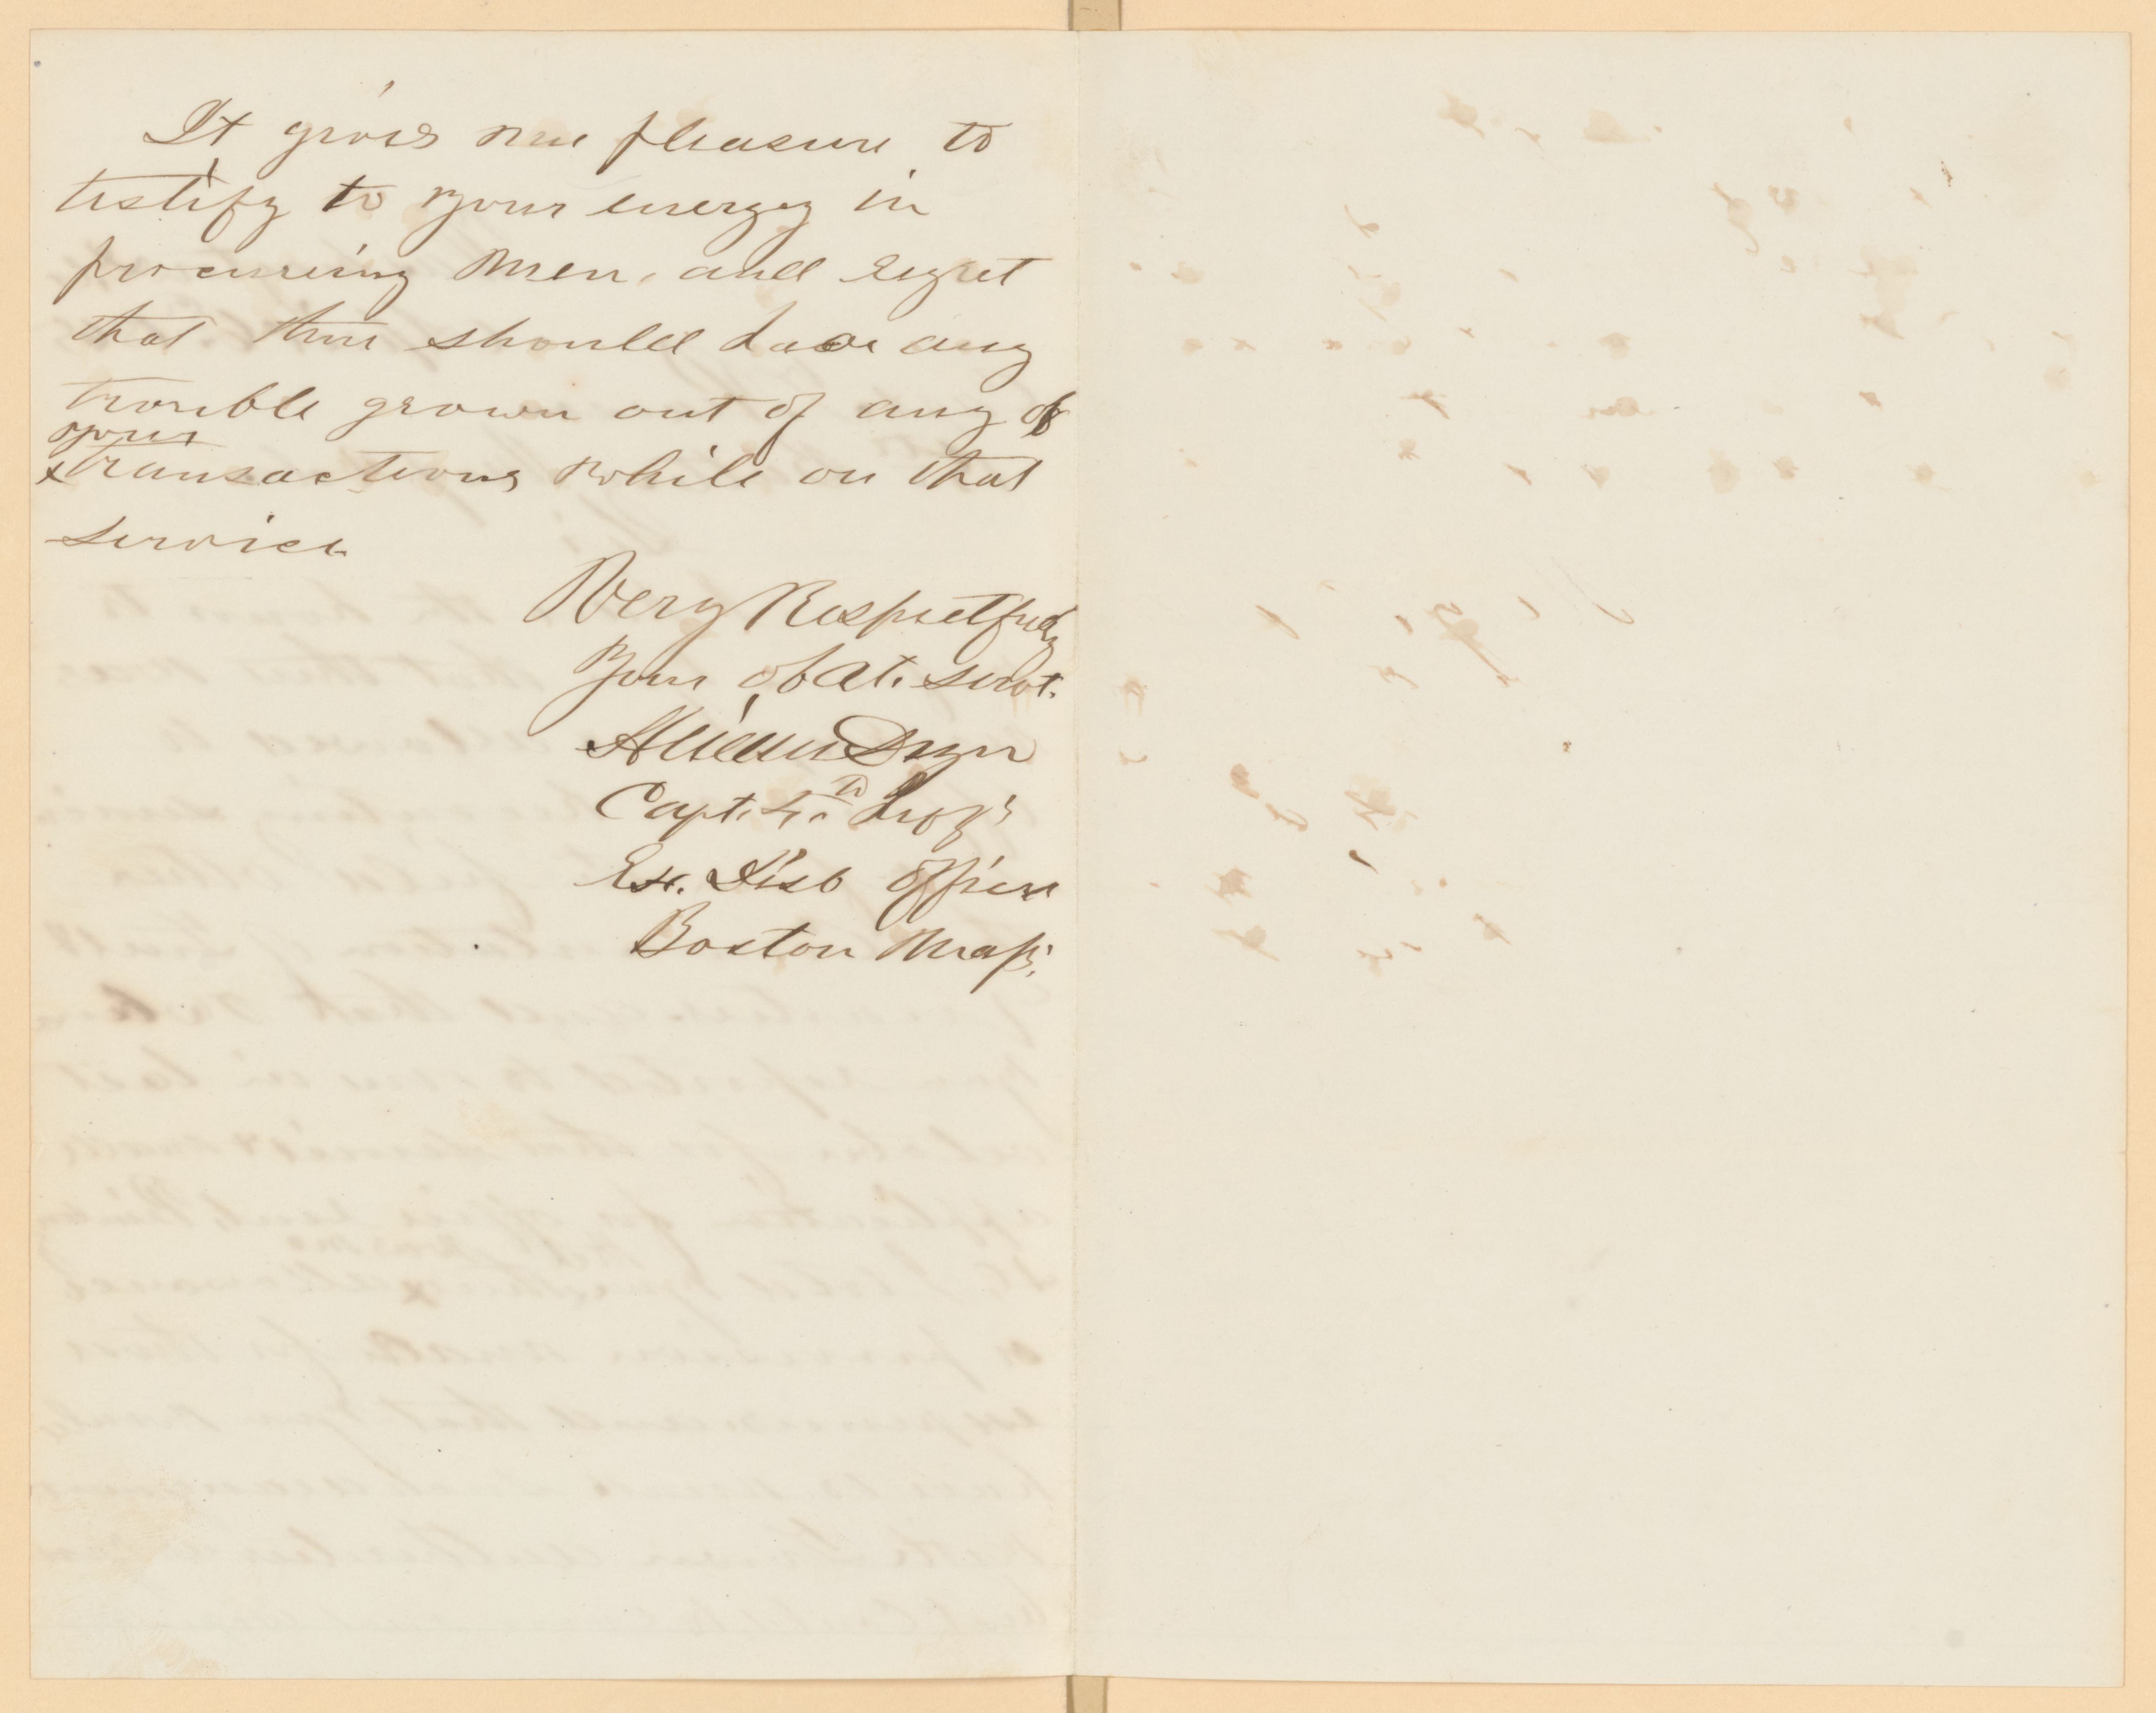 It gives me pleasure to
testify to your energy in
procuring men, and regret
that there should have any
trouble grown out of any of
your
x transactions while on that
service
Very Respectfully
Your obdt. servt.
Capt. 4th
Ex. Disb officer
Boston Mass.